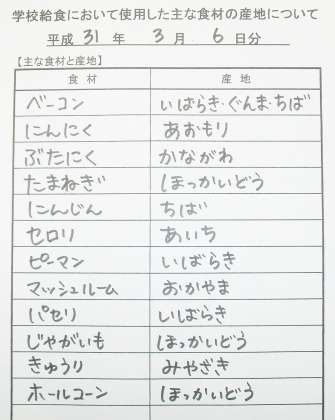 学校給食において使用した主な食材の産地について
平成 31 年 3 月 6 日分
【主な食材と産地】
食材 産地
ベーコン いばらき・ぐんま・ちば
にんにく あおもり
ぶたにく かながわ
たまねぎ ほっかいどう
にんじん ちば
セロリ あいち
ピーマン いばらき
マッシュルーム おかやま
パセリ いばらき
じゃがいも ほっかいどう
きゅうり みやざき
ホールコーン ほっかいどう